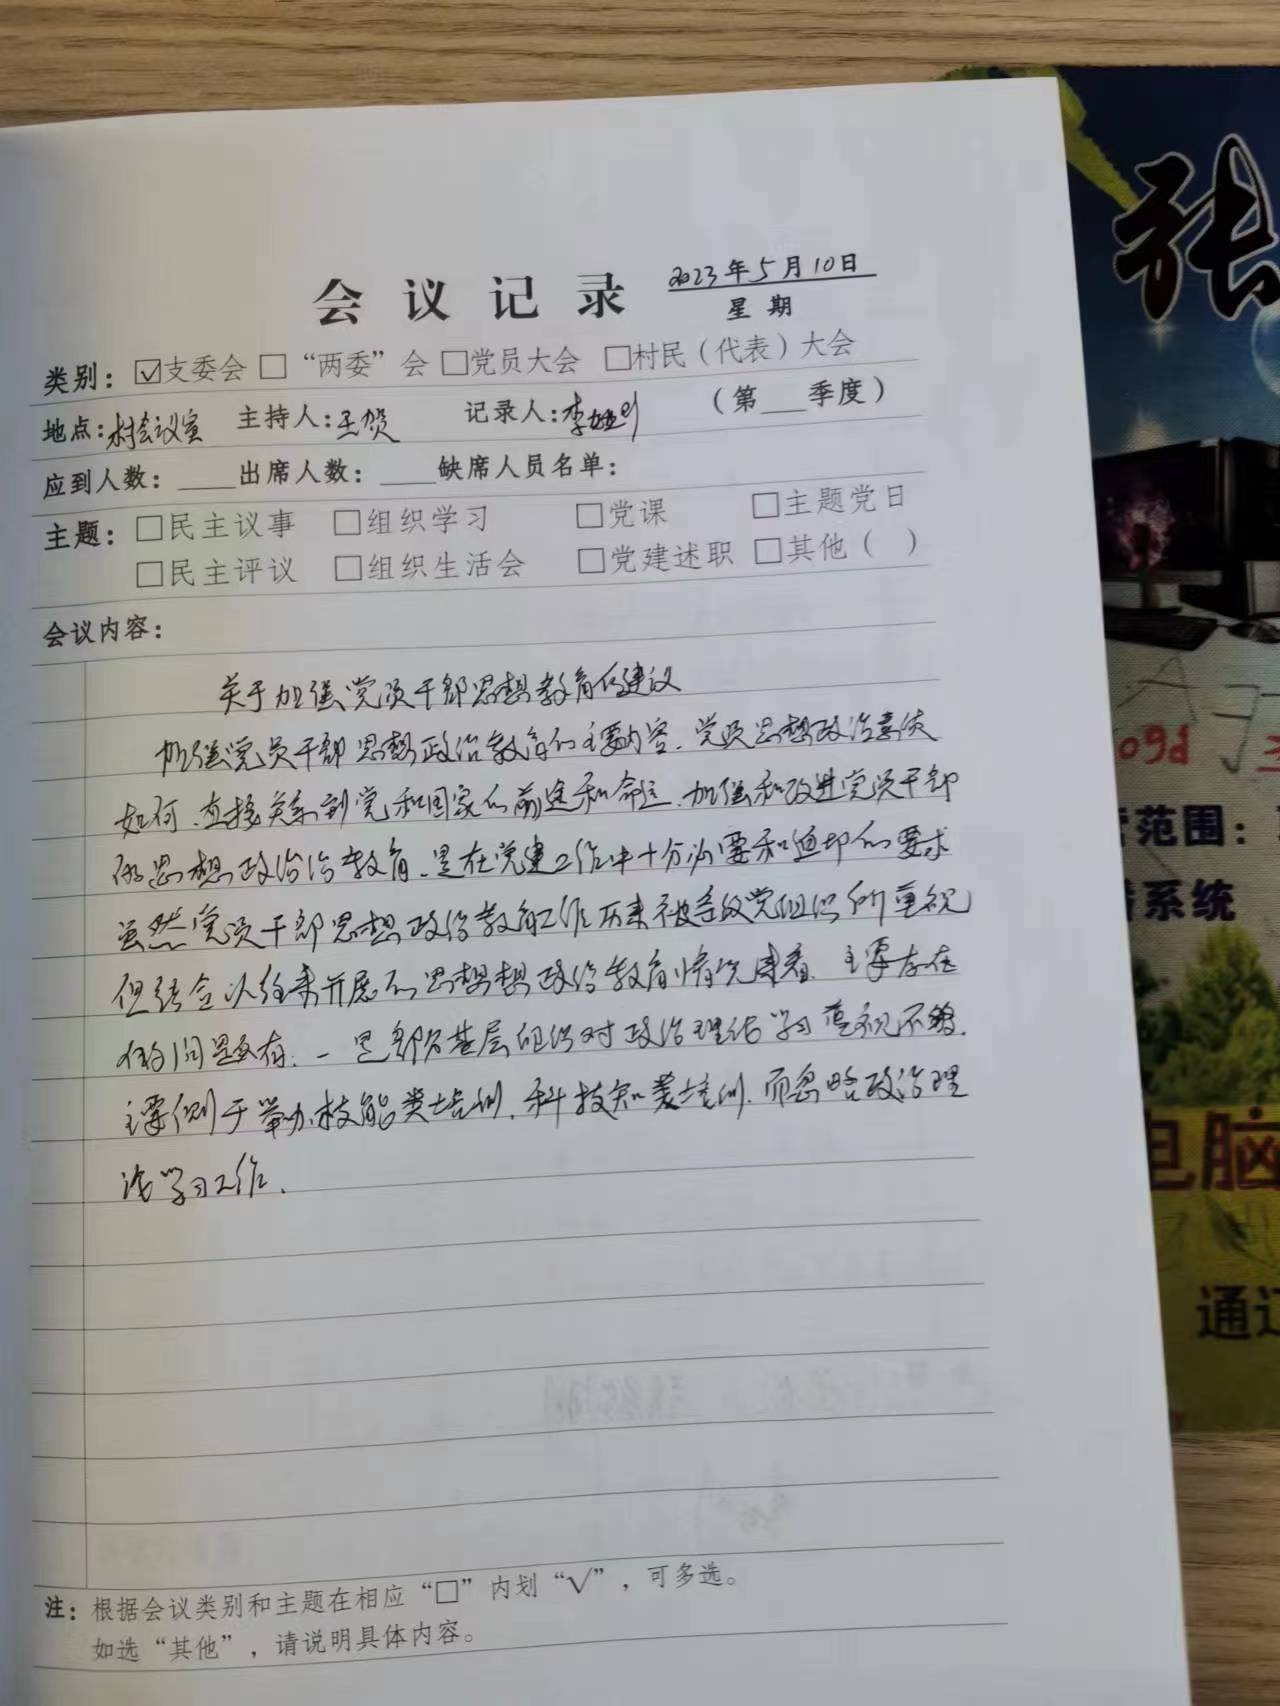 会议记录
2023年5月10日
星期
类别：☑支委会 □“两委”会 □党员大会 □村民（代表）大会
地点：村会议室 主持人：王贺 记录人：李 （第___季度）
应到人数：____出席人数：____缺席人员名单：
主题：□民主议事 □组织学习 □党课 □主题党日
□民主评议 □组织生活会 □党建述职 □其他（ ）
会议内容：
关于加强党员干部思想教育的建议
加强党员干部思想政治教育的主要内容.党员思想政治素质
如何.直接关系到党和国家的前途和命运.加强和改进党员干部
的思想政治治教育.是在党建工作中十分必要和迫切的要求
虽然党员干部思想政治教育工作历来被各级党组织所重视
但结合以往来开展的思想想政治教育情况来看.主要存在
的问题有.一是部分基层组织对政治理论学习重视不够.
主要侧于举办技能类培训.科技知类培训.而忽略政治理
论学习工作.
注：根据会议类别和主题在相应“□”内划“√”，可多选。
如选“其他”，请说明具体内容。
张
09d
范围：
系统
电脑
通辽